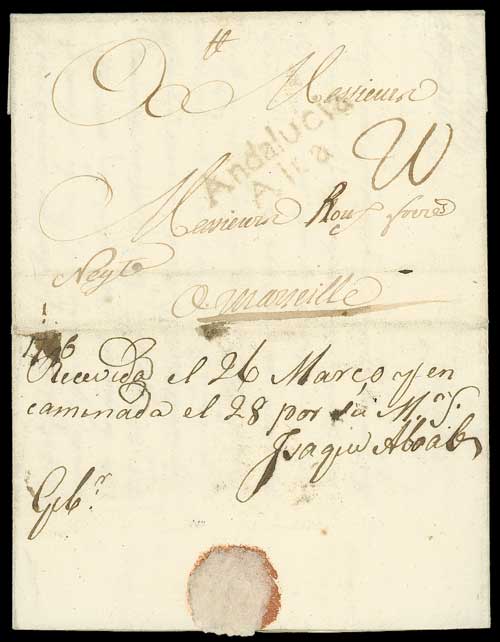 A Messieurs
Andalucia
Alta
Messieurs Roux freres
Negt
A Marseille
1746
Recevida el 26 Março y en
caminada el 28 por su
Isaque
Gibr.